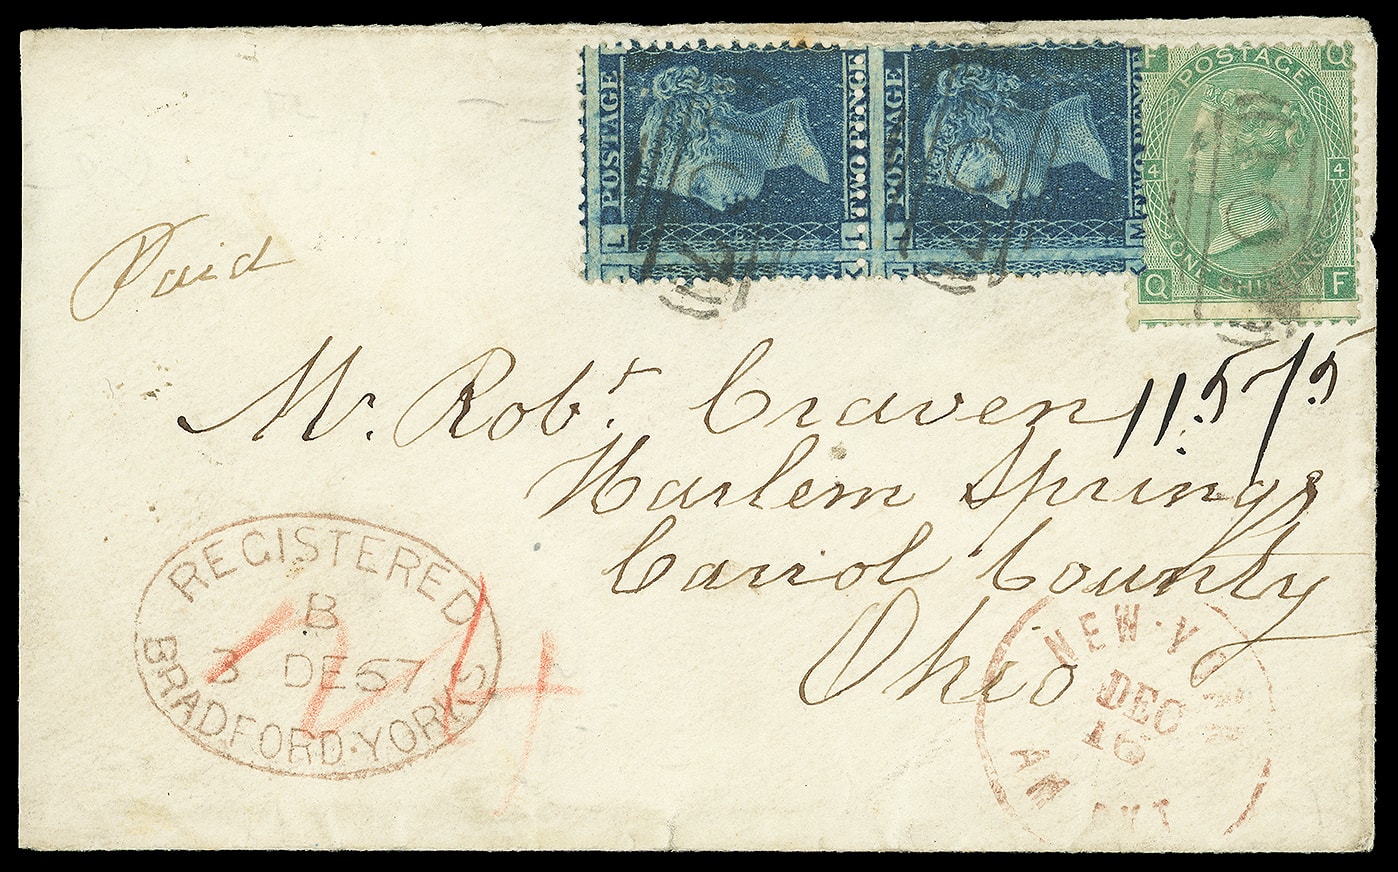 POSTAGE TWO PENCE L T
POSTAGE M
F Q
POSTAGE
4 4
ONE SHILLING
Q F
Paid
Mr. Robt. Craven 11575
Harlem Springs
Carrol County
Ohio
REGISTERED
B
3 DE 67
BRADFORD·YORKS
NEW·YORK
DEC
16
AM PKT
24